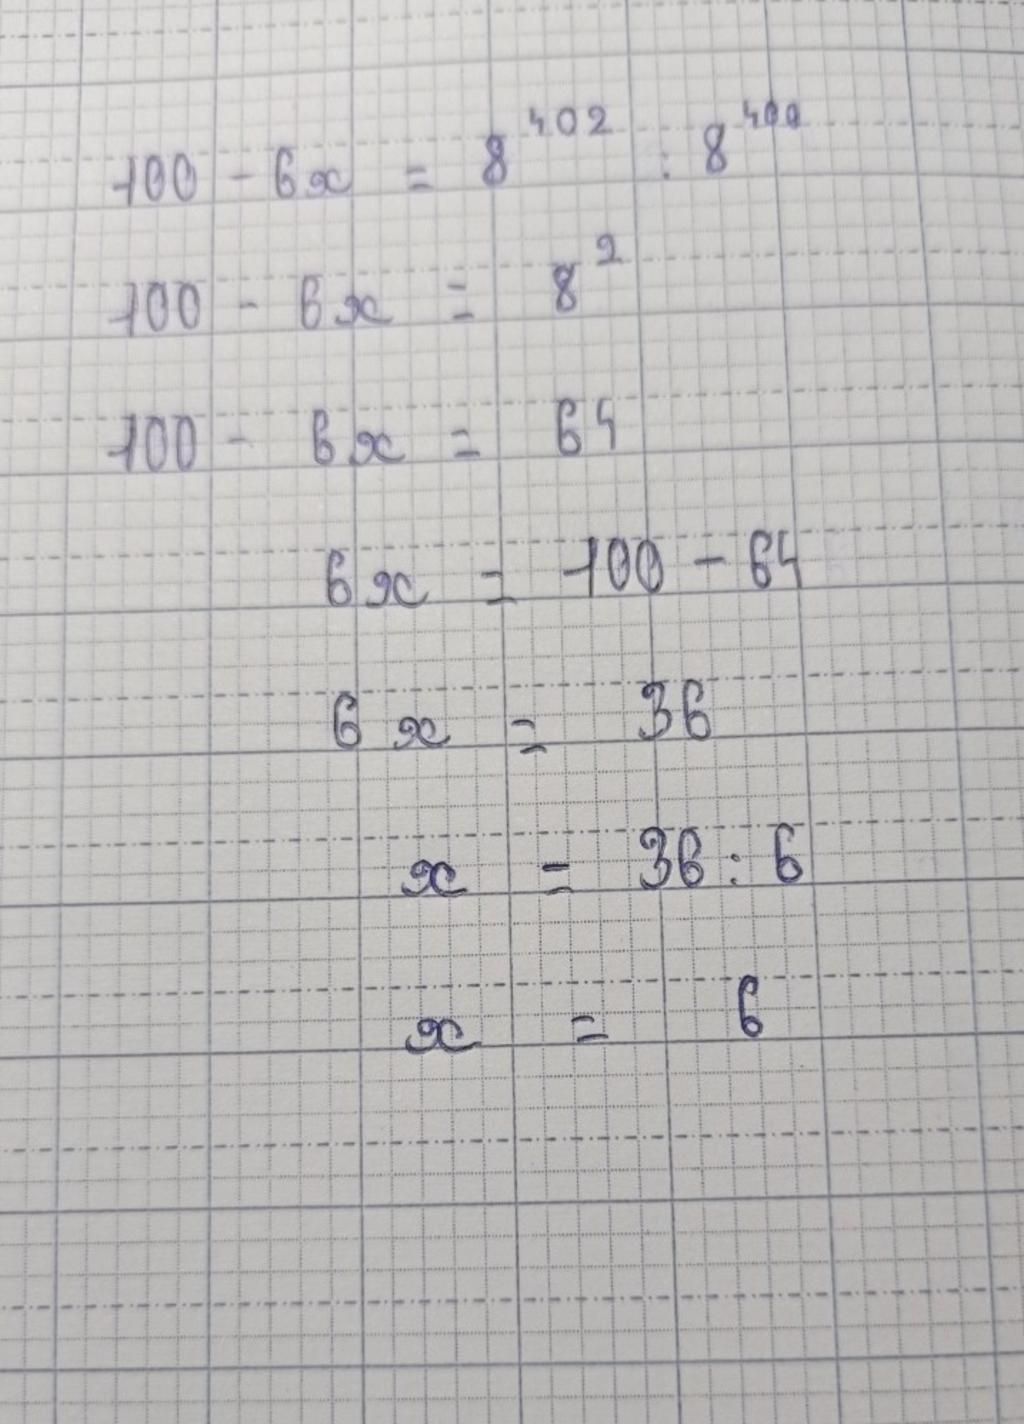 100 - 6x = 8^402 : 8^400
100 - 6x = 8^2
100 - 6x = 64
6x = 100 - 64
6x = 36
x = 36 : 6
x = 6